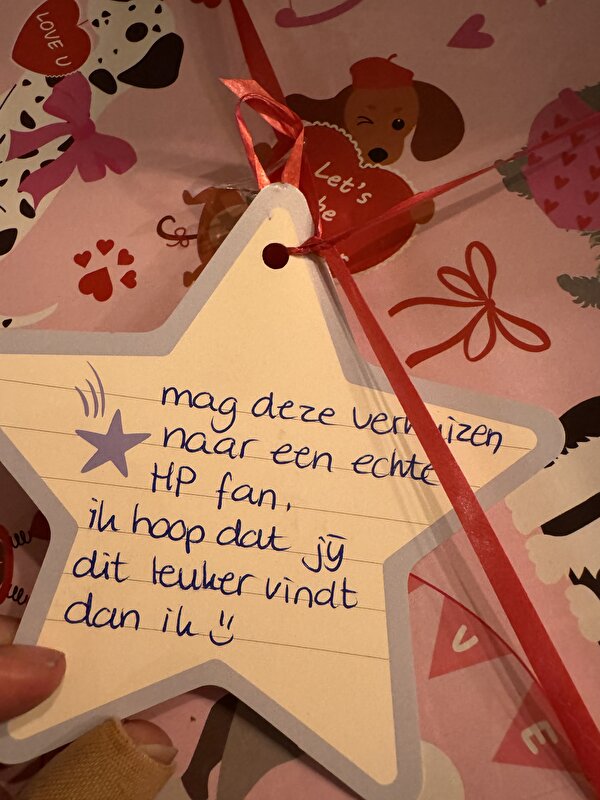 LOVE U
Let's
be
mag deze verhuizen
naar een echte
HP fan.
ik hoop dat jij
dit leuker vindt
dan ik
V
E